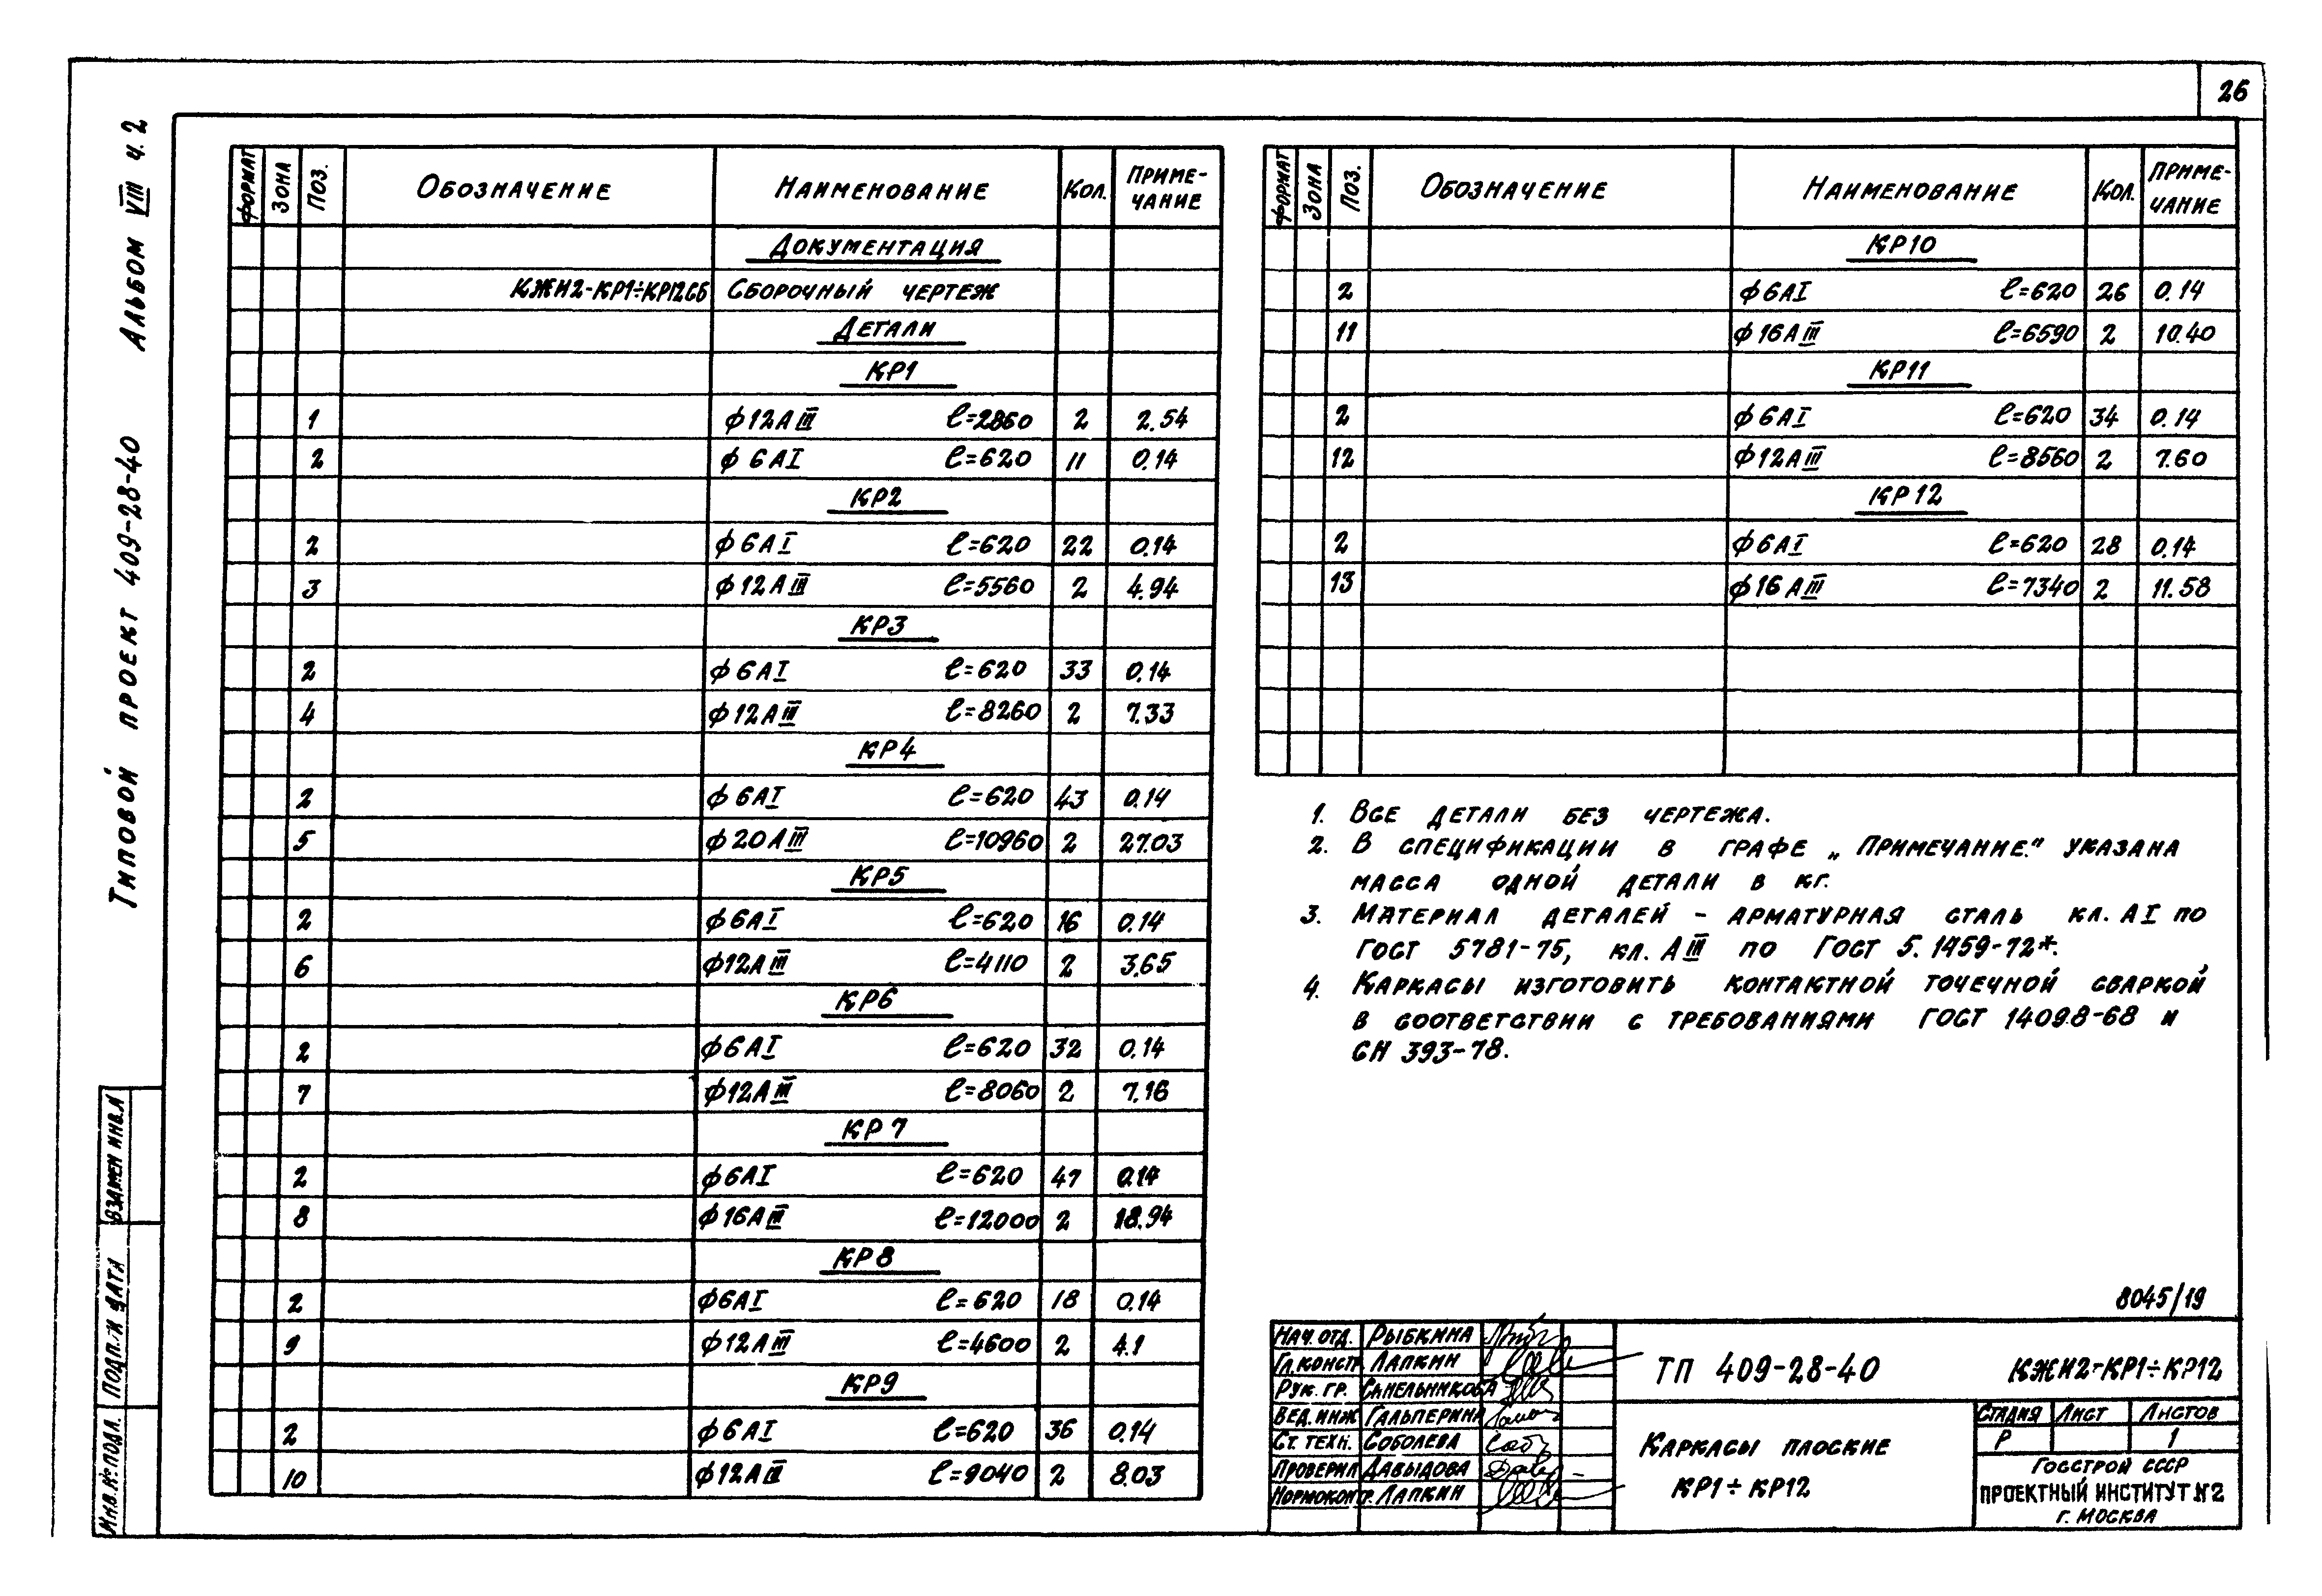 26
Типовой проект 409-28-40 Альбом VIII ч. 2
Формат Зона Поз. Обозначение Наименование Кол. Приме-
чание
Документация
КЖИ2-КР1÷КР12СБ Сборочный чертеж
Детали
КР1
1 ф12АIII ℓ=2860 2 2.54
2 ф6АI ℓ=620 11 0.14
КР2
2 ф6АI ℓ=620 22 0.14
3 ф12АIII ℓ=5560 2 4.94
КР3
2 ф6АI ℓ=620 33 0.14
4 ф12АIII ℓ=8260 2 7.33
КР4
2 ф6АI ℓ=620 43 0.14
5 ф20АIII ℓ=10960 2 27.03
КР5
2 ф6АI ℓ=620 16 0.14
6 ф12АIII ℓ=4110 2 3.65
КР6
2 ф6АI ℓ=620 32 0.14
7 ф12АIII ℓ=8060 2 7.16
КР7
2 ф6АI ℓ=620 47 0.14
8 ф16АIII ℓ=12000 2 18.94
КР8
2 ф6АI ℓ=620 18 0.14
9 ф12АIII ℓ=4600 2 4.1
КР9
2 ф6АI ℓ=620 36 0.14
10 ф12АIII ℓ=9040 2 8.03
Формат Зона Поз. Обозначение Наименование Кол. Приме-
чание
КР10
2 ф6АI ℓ=620 26 0.14
11 ф16АIII ℓ=6590 2 10.40
КР11
2 ф6АI ℓ=620 34 0.14
12 ф12АIII ℓ=8560 2 7.60
КР12
2 ф6АI ℓ=620 28 0.14
13 ф16АIII ℓ=7340 2 11.58
1. Все детали без чертежа.
2. В спецификации в графе „Примечание" указана
масса одной детали в кг.
3. Материал деталей - арматурная сталь кл. АI по
ГОСТ 5781-75, кл. АIII по ГОСТ 5.1459-72*.
4. Каркасы изготовить контактной точечной сваркой
в соответствии с требованиями ГОСТ 14098-68 и
СН 393-78.
8045/19
Нач. отд. Рыбкина
Гл. констр Лапкин
Рук. гр. Синельникова
Вед. инж Гальперина
Ст. техн. Соболева
Проверил Давыдова
Нормоконтр. Лапкин
ТП 409-28-40 КЖИ2-КР1÷КР12
Каркасы плоские
КР1÷КР12
Стадия Лист Листов
Р 1
Госстрой СССР
ПРОЕКТНЫЙ ИНСТИТУТ №2
г. Москва
Взамен инв.№
Подп. и дата
Инв. № подл.